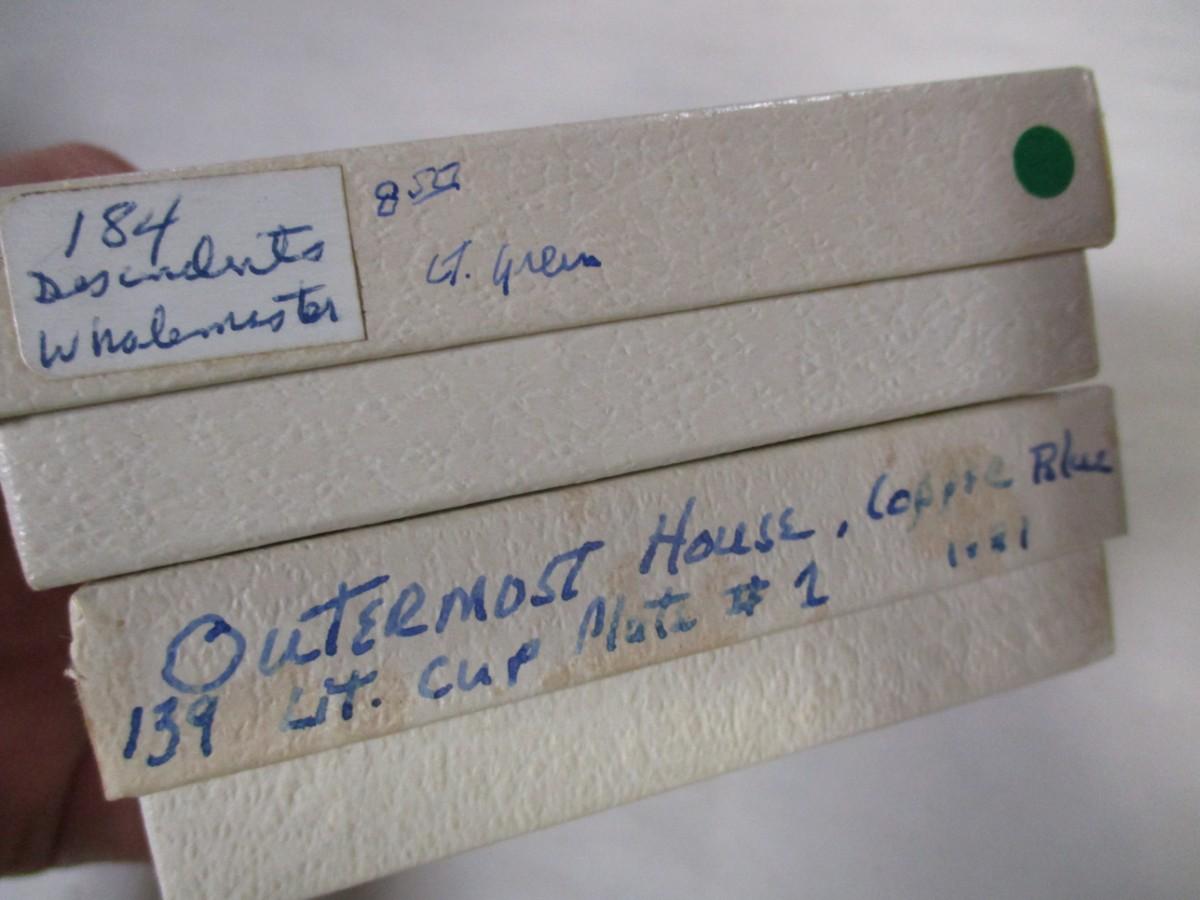 184
Descendents
Whalemaster
8 50
Lt. Green
OUTERMOST HOUSE, Copper Blue
139 Lit. Cup Plate # 1